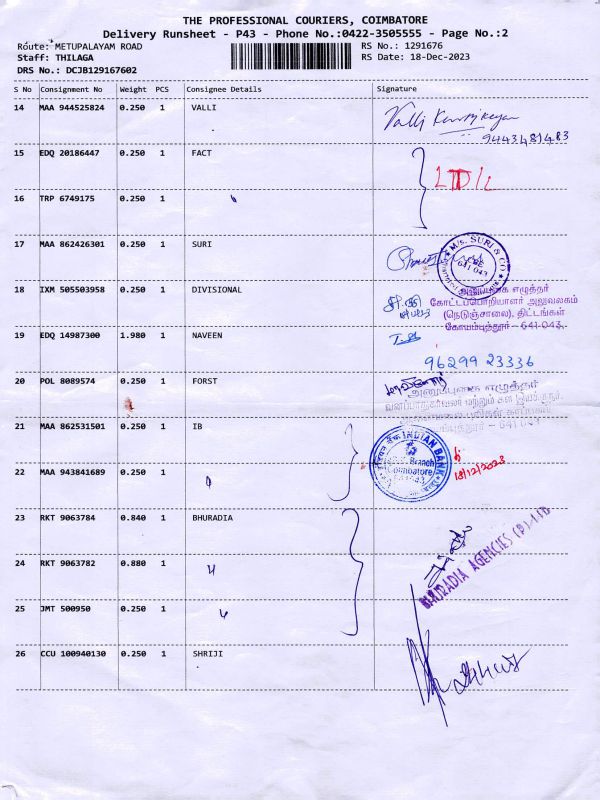 THE PROFESSIONAL COURIERS, COIMBATORE
Delivery Runsheet - P43 - Phone No.:0422-3505555 - Page No.:2
Route: METUPALAYAM ROAD
RS No.: 1291676
Staff: THILAGA
RS Date: 18-Dec-2023
DRS No.: DCJB129167602
S No Consignment No Weight PCS Consignee Details Signature
14 MAA 944525824 0.250 1 VALLI
Valli
9443481483
15 EDQ 20186447 0.250 1 FACT
16 TRP 6749175 0.250 1
17 MAA 862426301 0.250 1 SURI
M/s. SURI & CO
641 043
18 IXM 505503958 0.250 1 DIVISIONAL
அலுவலக எழுத்தர்
கோட்டப்பொறியாளர் அலுவலகம்
(நெடுஞ்சாலை), திட்டங்கள்
கோயம்புத்தூர் - 641 043.
19 EDQ 14987300 1.980 1 NAVEEN
96299 23336
20 POL 8089574 0.250 1 FORST
எழுத்தர்
641 043
21 MAA 862531501 0.250 1 IB
INDIAN BANK
Branch
Coimbatore
18/12/2023
22 MAA 943841689 0.250 1
23 RKT 9063784 0.840 1 BHURADIA
BHURADIA AGENCIES (P) LTD
24 RKT 9063782 0.880 1
25 JMT 500950 0.250 1
26 CCU 100940130 0.250 1 SHRIJI